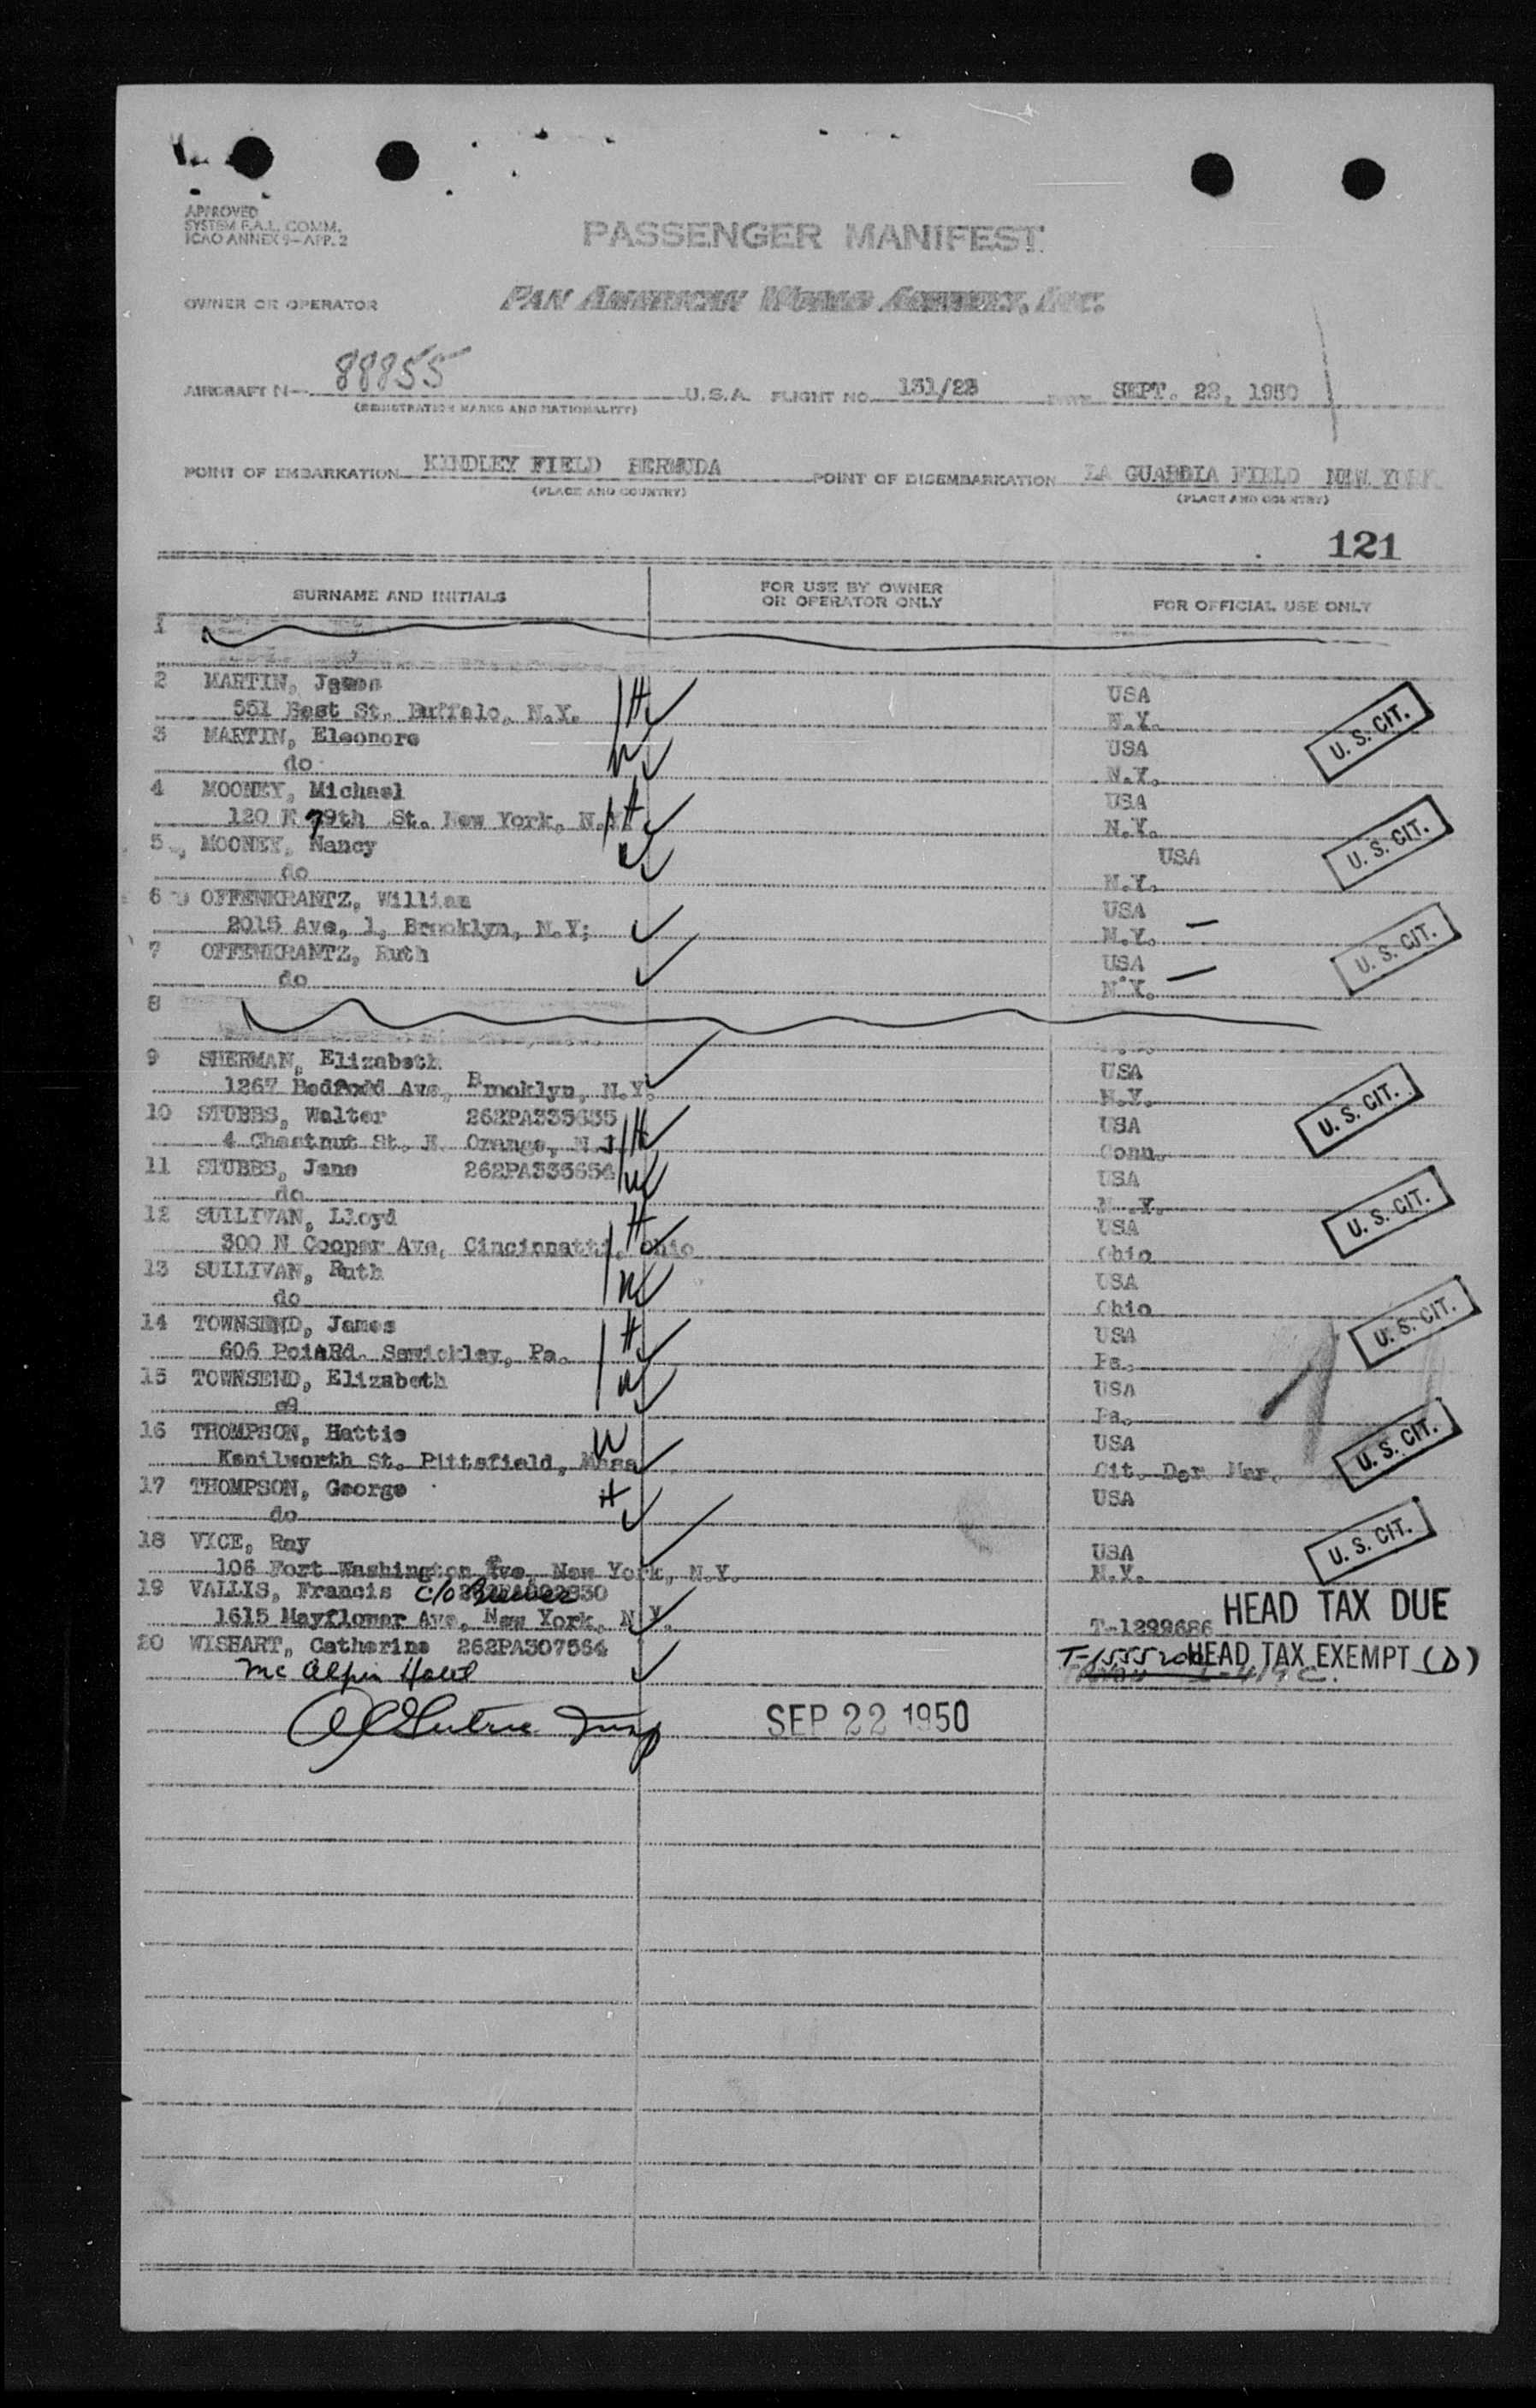 APPROVED
SYSTEM F.A.L. COMM.
ICAO ANNEX 9-APP. 2
PASSENGER MANIFEST
OWNER OR OPERATOR PAN AMERICAN WORLD AIRWAYS, INC.
AIRCRAFT N- 88855 U.S.A. FLIGHT NO. 131/23 DATE SEPT. 22, 1950
(REGISTRATION MARKS AND NATIONALITY)
POINT OF EMBARKATION KINDLEY FIELD BERMUDA POINT OF DISEMBARKATION LA GUARDIA FIELD NEW YORK
(PLACE AND COUNTRY) (PLACE AND COUNTRY)
121
SURNAME AND INITIALS FOR USE BY OWNER OR OPERATOR ONLY FOR OFFICIAL USE ONLY
1
2 MARTIN, James USA
551 Best St. Buffalo, N.Y. H N.Y. U. S. CIT.
3 MARTIN, Eleonore USA
do W N.Y.
4 MOONEY, Michael USA
120 E 79th St. New York, N.Y. H N.Y. U. S. CIT.
5 MOONEY, Nancy USA
do N.Y.
6 OFFENKRANTZ, William USA
2015 Ave, 1, Brooklyn, N.Y; N.Y. U. S. CIT.
7 OFFENKRANTZ, Ruth USA
do N.Y.
8
9 SHERMAN, Elizabeth USA
1267 Bedford Ave, Brooklyn, N.Y. N.Y. U. S. CIT.
10 STUBBS, Walter 262PA335635 USA
4 Chestnut St. E. Orange, N.J. H Conn.
11 STUBBS, Jane 262PA335654 USA
do W N.Y. U. S. CIT.
12 SULLIVAN, Lloyd H USA
300 N Cooper Ave, Cincinnatti, Ohio Ohio
13 SULLIVAN, Ruth USA
do W Ohio U. S. CIT.
14 TOWNSEND, James H USA
606 Rd. Sewickley, Pa. Pa.
15 TOWNSEND, Elizabeth W USA
Pa.
16 THOMPSON, Hattie W USA U. S. CIT.
Kenilworth St. Pittsfield, Mass Cit. Der. Mar.
17 THOMPSON, George H USA
do
18 VICE, Ray USA U. S. CIT.
106 Fort Washington Ave, New York, N.Y. N.Y.
19 VALLIS, Francis c/o
1615 Mayflower Ave, New York, N.Y. T-1299686 HEAD TAX DUE
20 WISHART, Catherine 262PA307564 HEAD TAX EXEMPT (D)
Mc Alpin Hotel
Insp SEP 22 1950